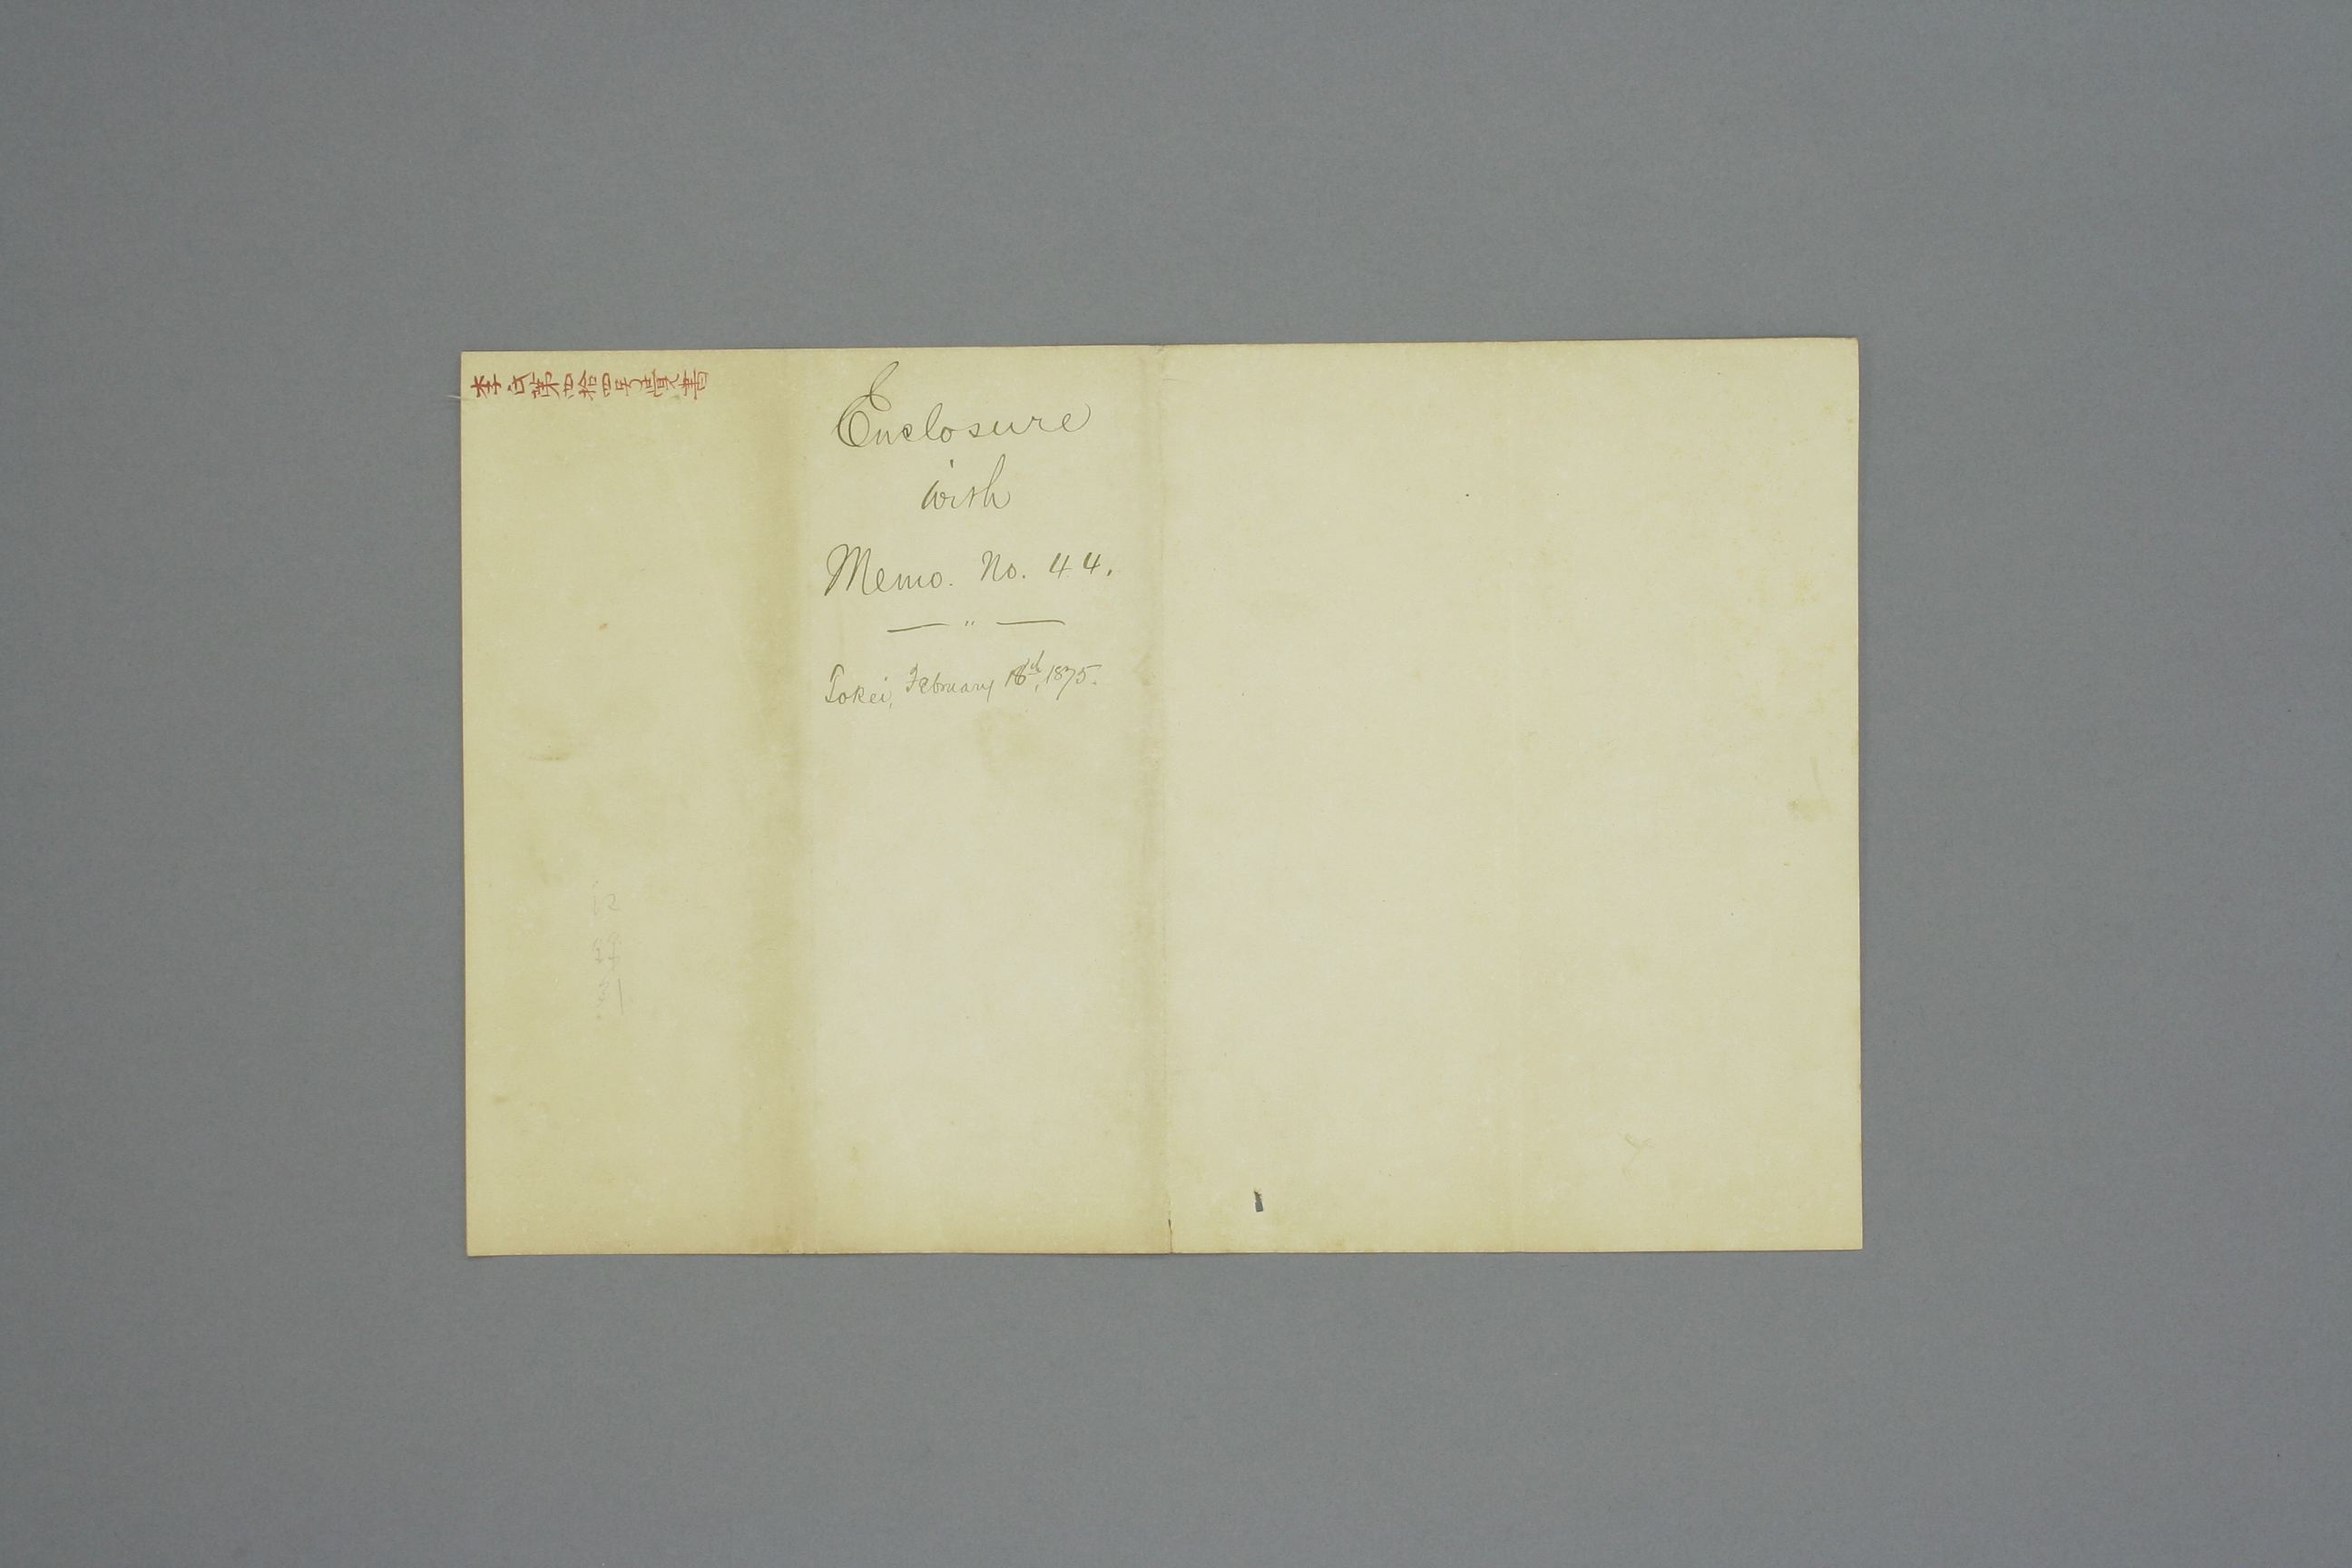 李氏第四拾四号覚書
Enclosure
with
Memo. No. 44.
Tokei, February 18th, 1875.